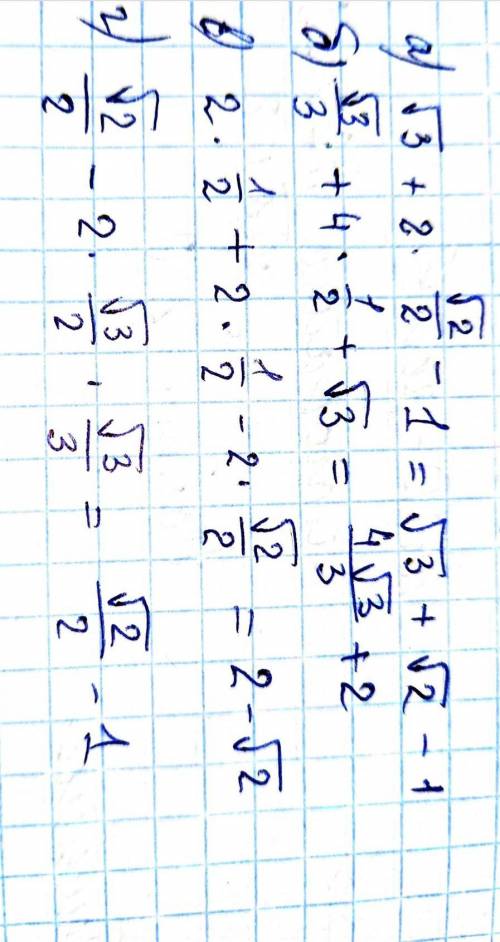 а) √3 + 2 · √2/2 - 1 = √3 + √2 - 1
б) √3/3 + 4 · 1/2 + √3 = 4√3/3 + 2
в) 2 · 1/2 + 2 · 1/2 - 2 · √2/2 = 2 - √2
г) √2/2 - 2 · √3/2 · √3/3 = √2/2 - 1